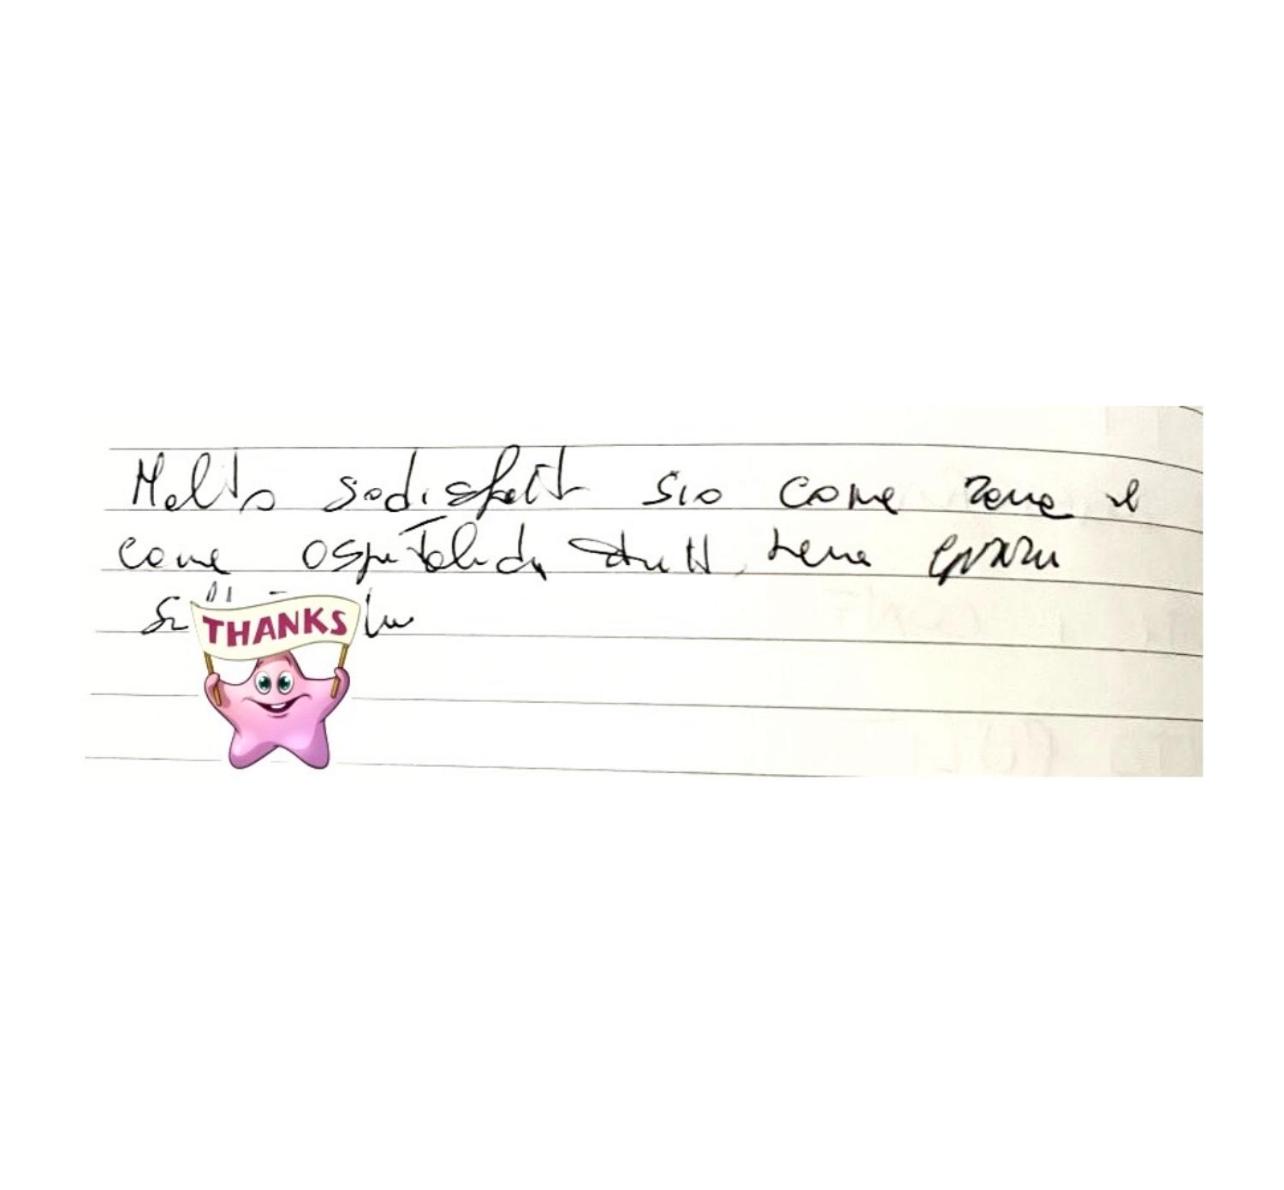 Molto sodisfatt sia come zona e
come ospitalida tutt, bene
THANKS